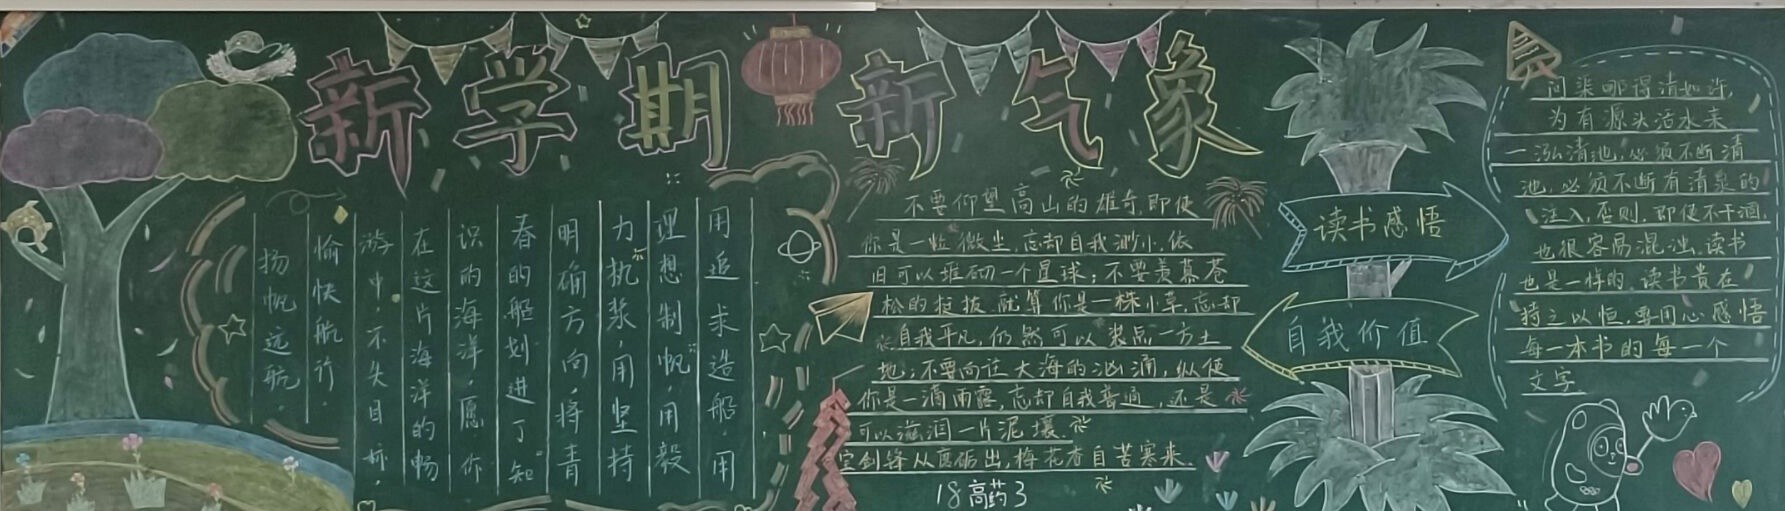 新学期 新气象
用追求造船,用
理想制帆,用毅
力执桨,用坚持
明确方向,将青
春的船划进了知
识的海洋,愿你
在这片海洋的畅
游中,不失目标,
愉快航行,
扬帆远航。
不要仰望高山的雄奇,即使
你是一粒微尘,忘却自我渺小,依
旧可以堆砌一个星球;不要羡慕苍
松的挺拔,就算你是一株小草,忘却
自我平凡,仍然可以装点一方土
地;不要向往大海的汹涌,纵使
你是一滴雨露,忘却自我普通,还是
可以滋润一片泥壤。
宝剑锋从磨砺出,梅花香自苦寒来。
18高药3
读书感悟
自我价值
问渠哪得清如许,
为有源头活水来
一泓清池,必须不断清
池,必须不断有清泉的
注入,否则,即使不干涸,
也很容易混浊。读书
也是一样的,读书贵在
持之以恒,要用心感悟
每一本书的每一个
文字